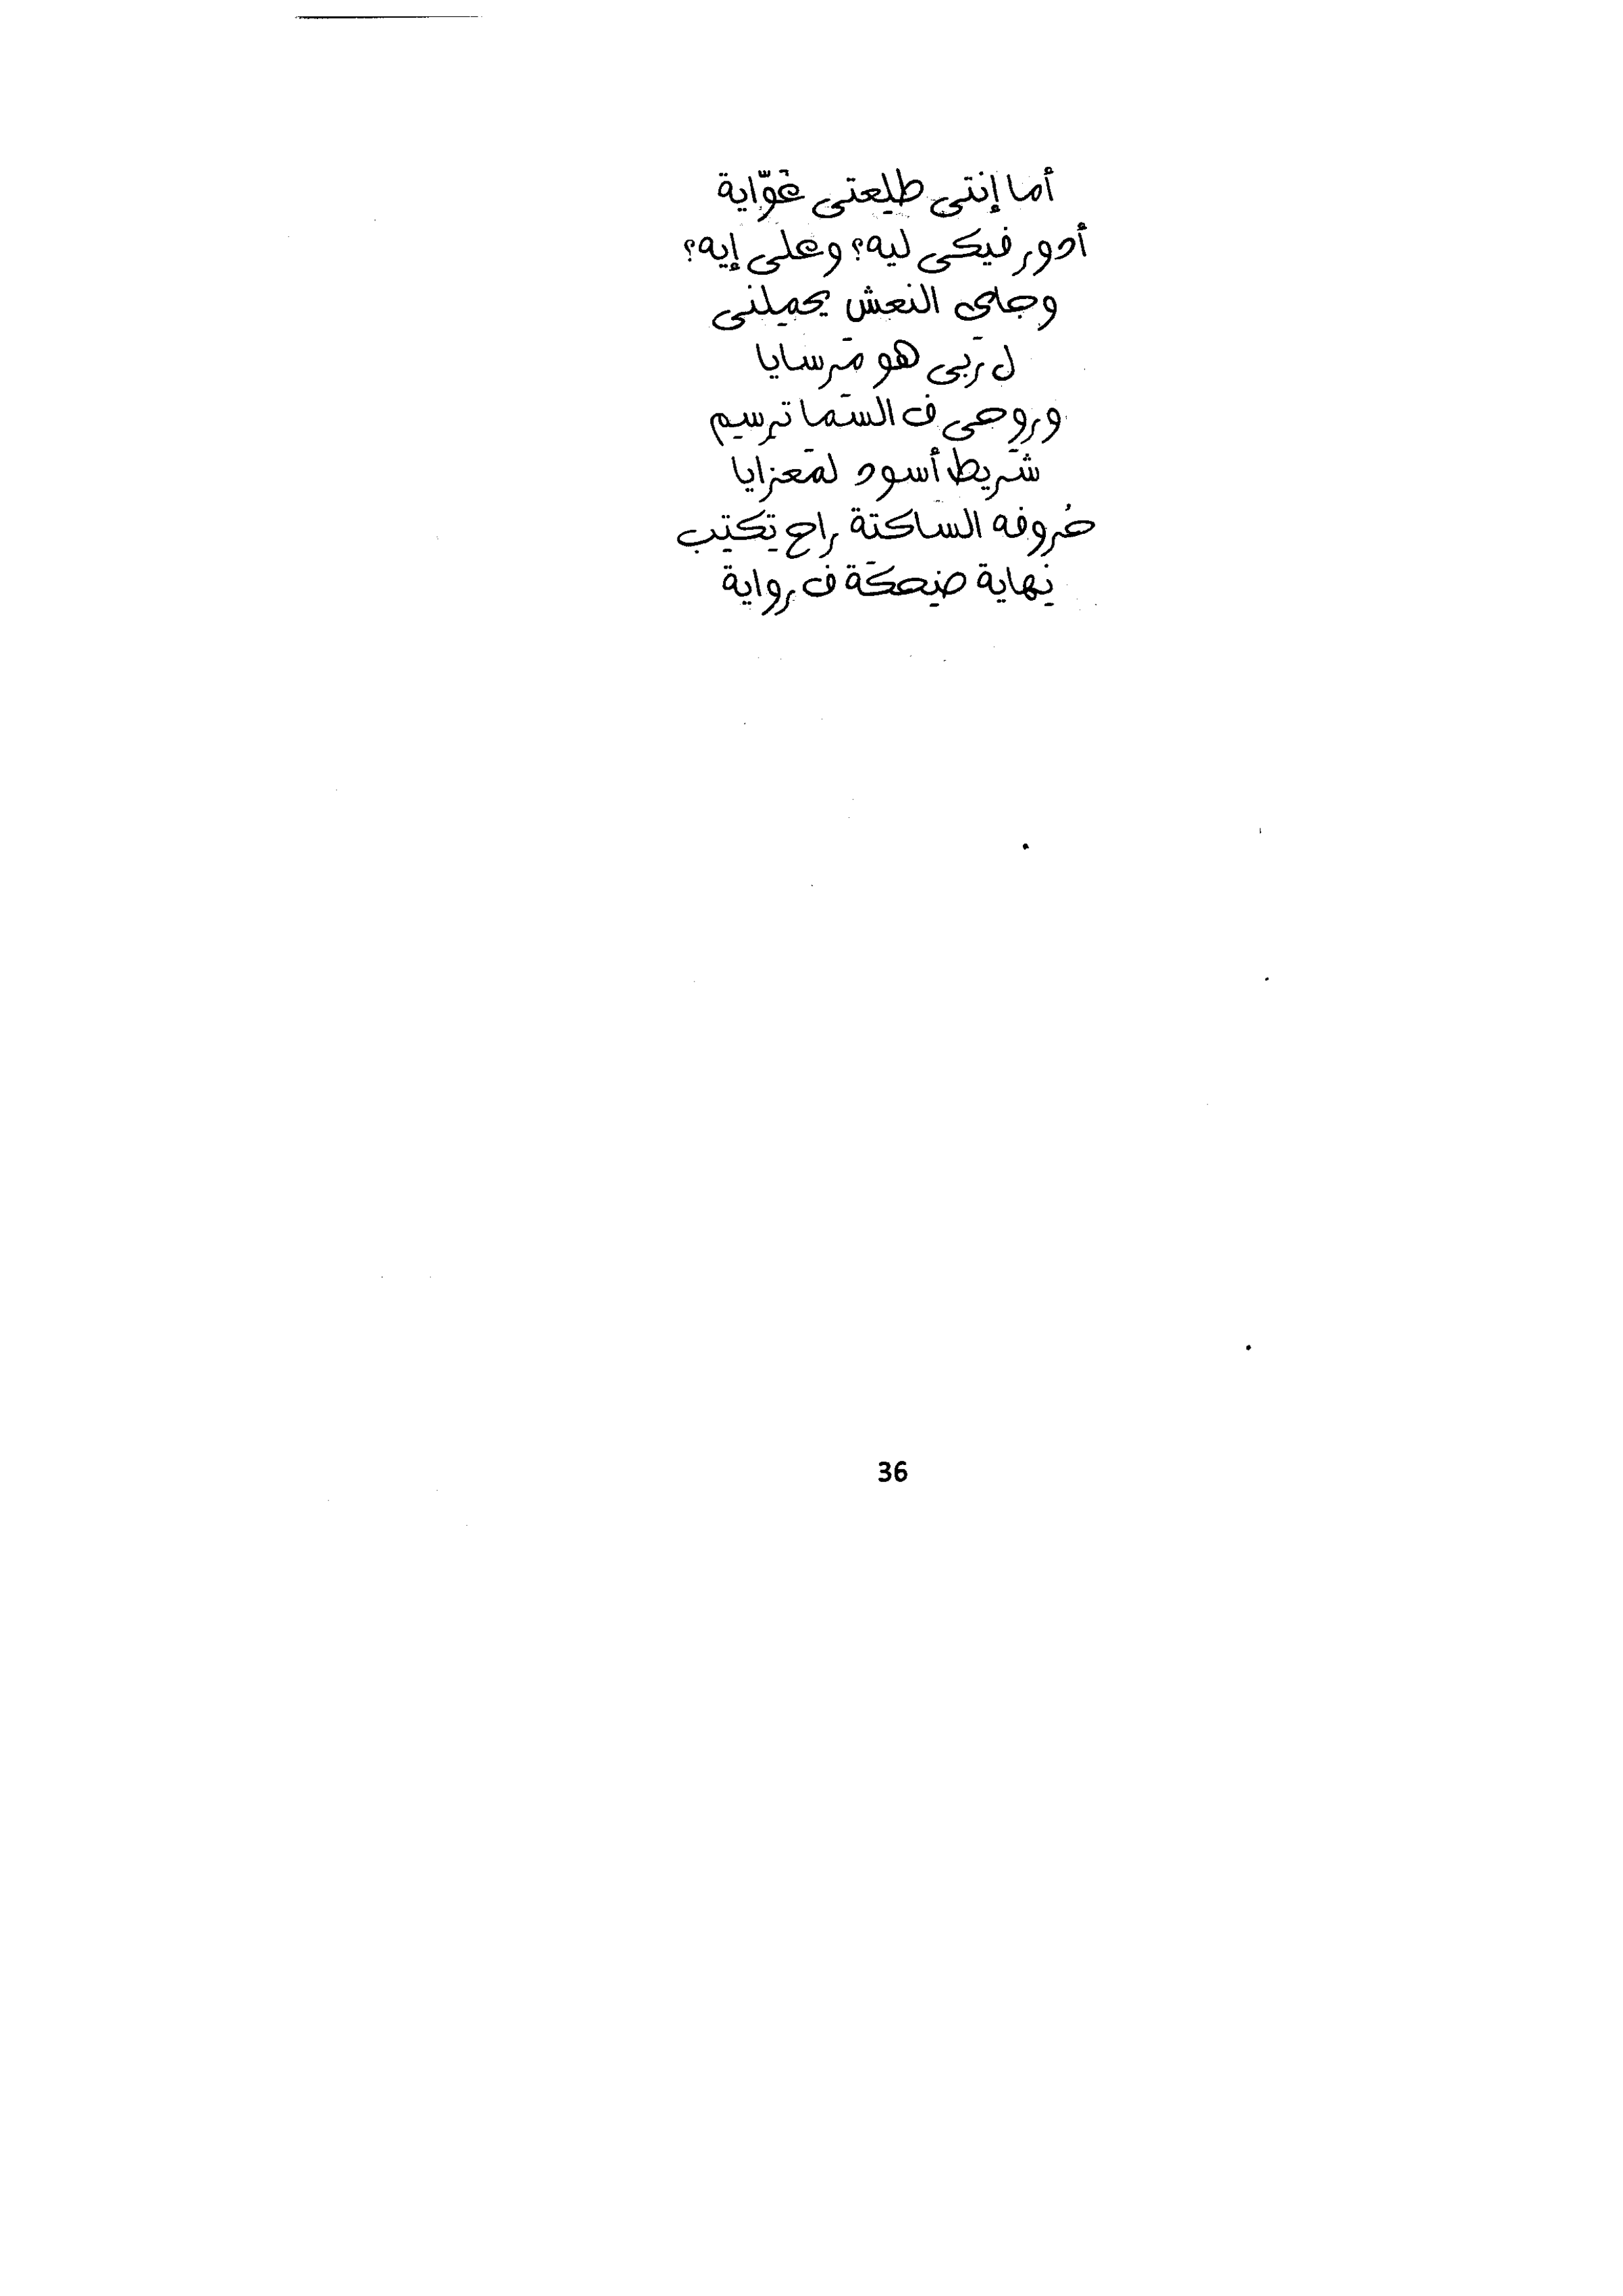 أما إنتى طلعتى غوّاية
أدور فيكى ليه؟ وعلى إيه؟
وجاى النعش يحمِلنى
ل رَبى هو مَرسايا
وروحى ف السَما ترسِم
شَريط أسود لمَعزايا
حُروفه الساكتة راح تِكتِب
نِهاية ضِحكَة ف رواية
36